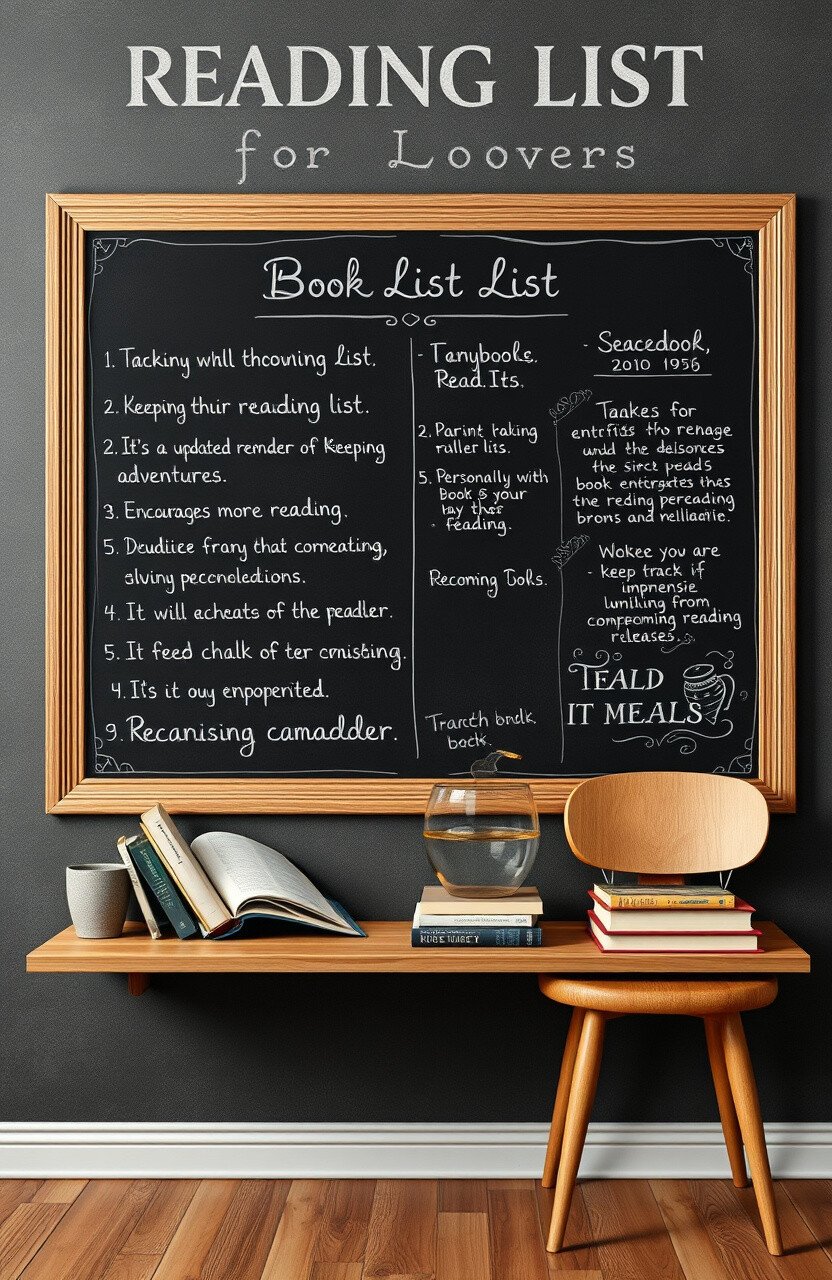 READING LIST
for Loovers
Book List List
1. Tacking whll thcowning List.
2. Keeping thuir reading list.
2. It's a updated render of Keeping
adventures.
3. Encourages more reading.
5. Deudiice frany that comeating,
slving peccnoledions.
4. It will acheats of the peadler.
5. It feed chalk of ter cmisting.
4. It's it ouy enpoperited.
9. Recanising camadder.
- Tanybooks.
Read. Its.
2. Parint taking
ruller lits.
5. Personally with
Book & your
hay thar
feading.
Recoming Tools.
Tracth bndk.
bock.
- Seacedook,
2010 1956
Taakes for
the renage
and the
the sirct peads
book
the reding pereading
brons and
Wokee you are
- keep track if
imprnensie
lunlking from
reading
releases.
TEALD
IT MEALS